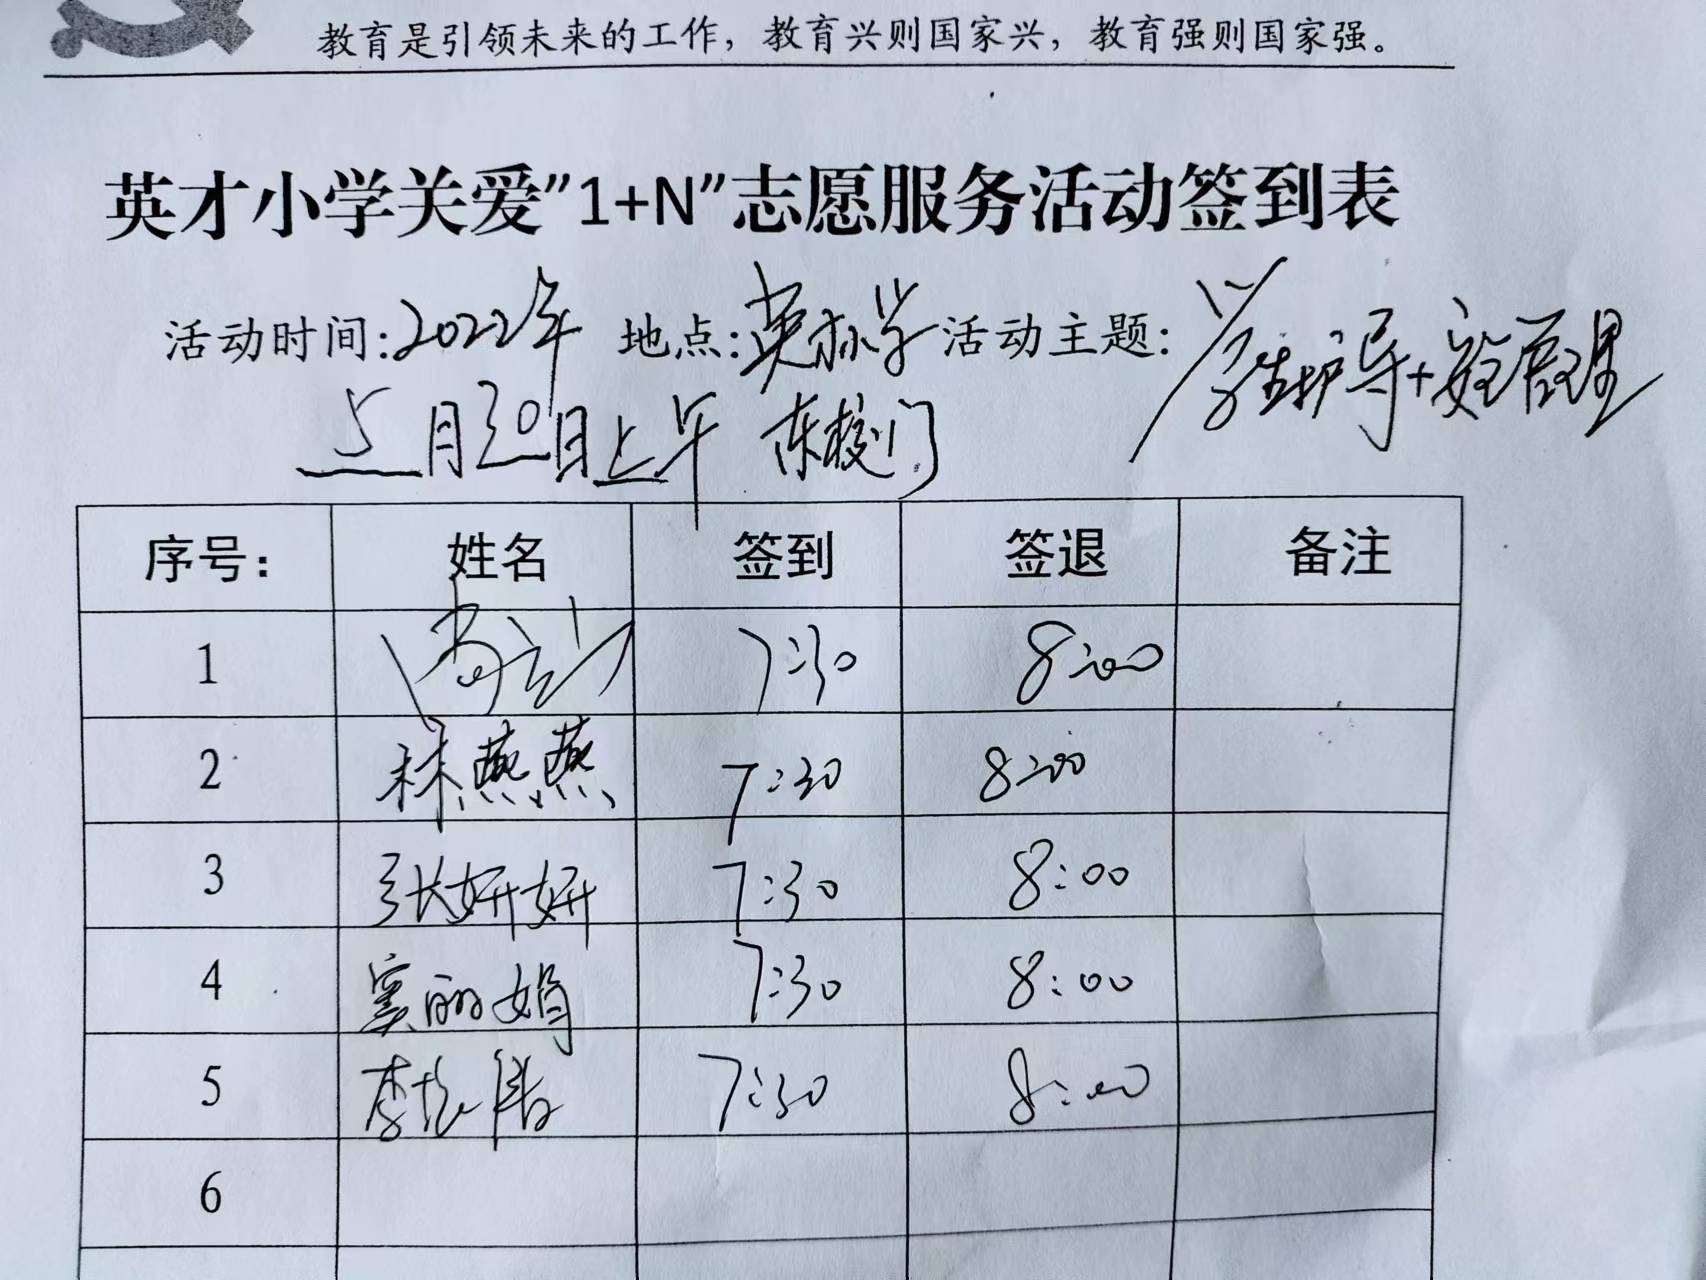 教育是引领未来的工作，教育兴则国家兴，教育强则国家强。
英才小学关爱"1+N"志愿服务活动签到表
活动时间:2022年 地点:英才小学 活动主题:学生护导+安全管理
5月30日上午 东校门
序号: 姓名 签到 签退 备注
1 7:30 8:00
2 林燕燕 7:30 8:00
3 张妍妍 7:30 8:00
4 窦丽娟 7:30 8:00
5 李 7:30 8:00
6